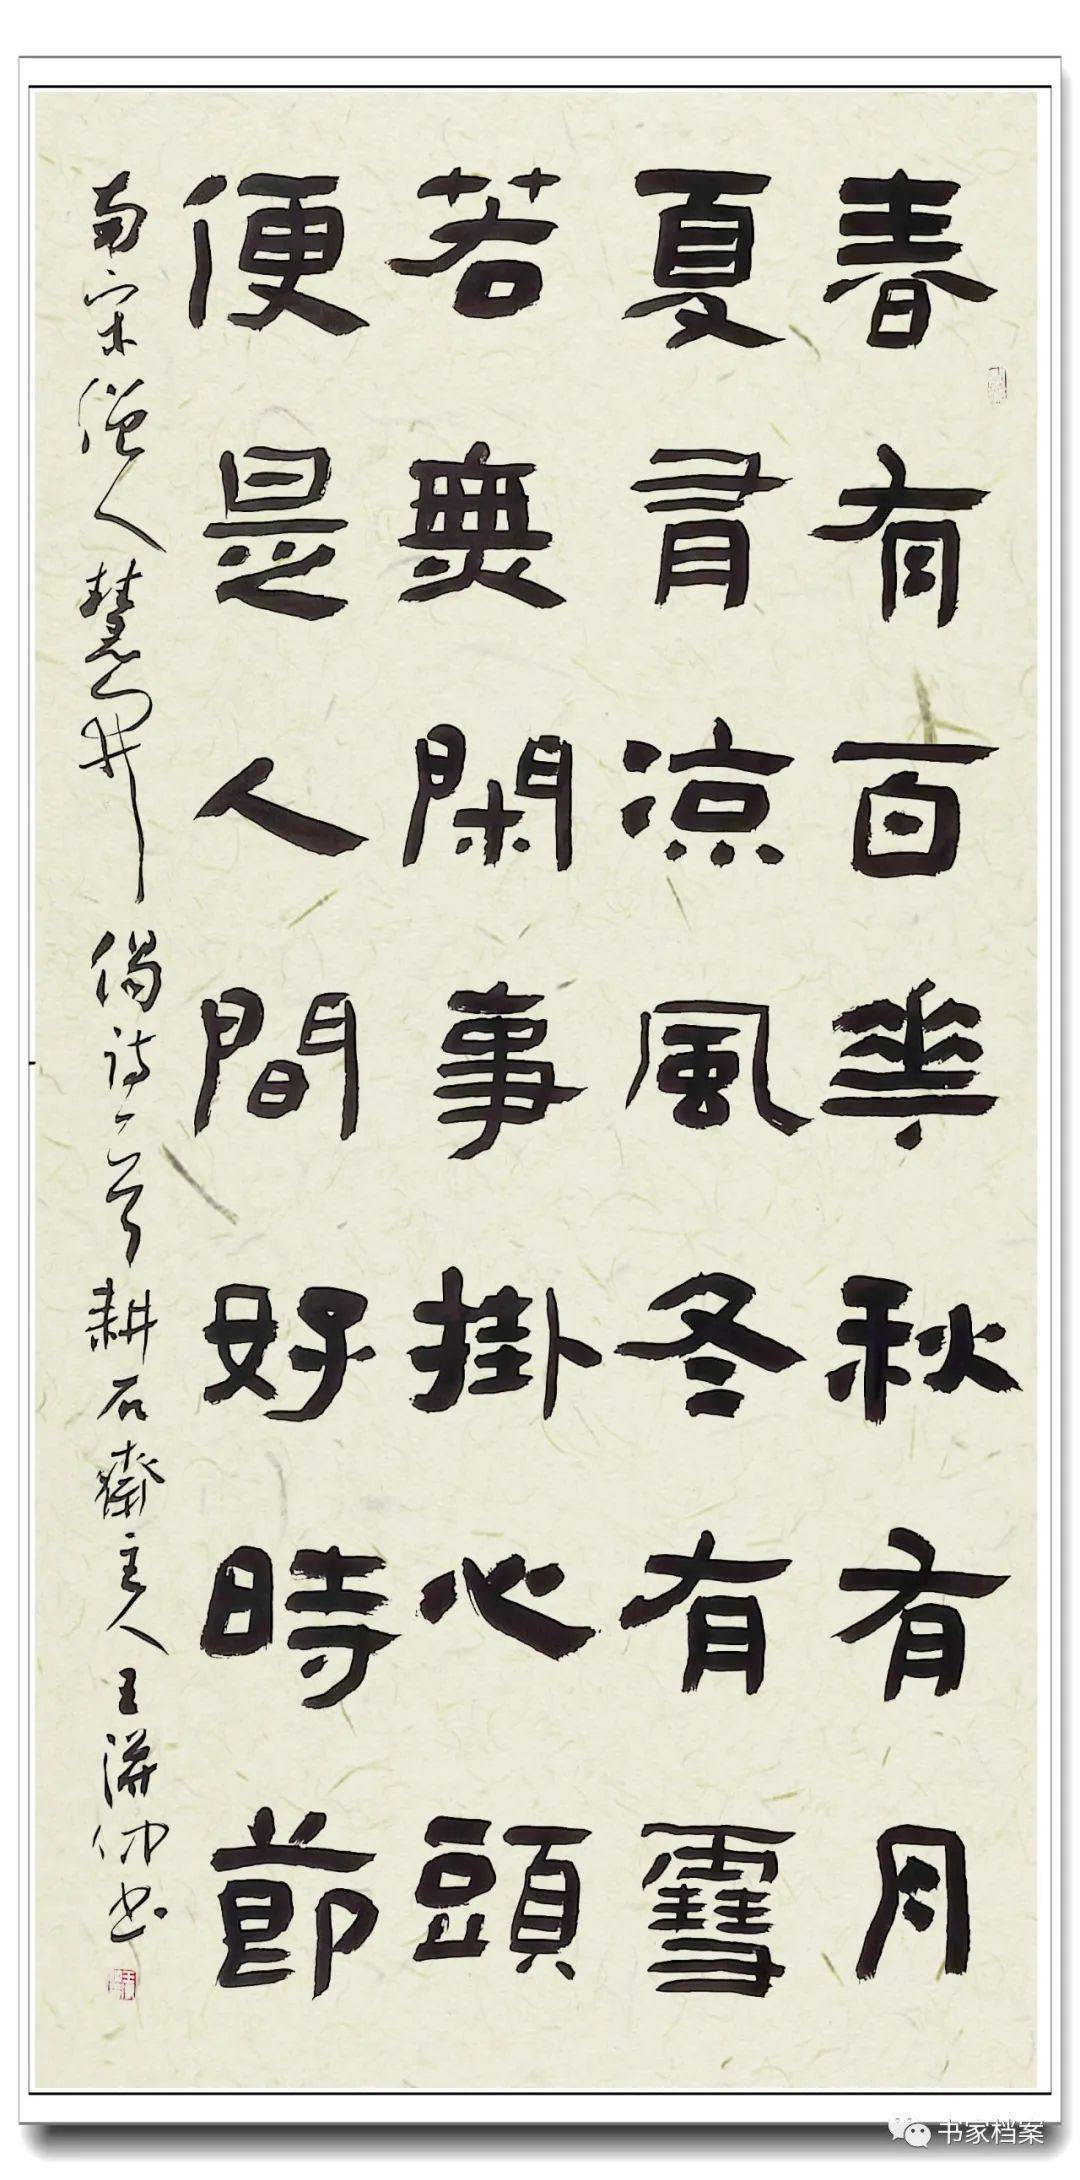 春有百華秋有月
夏有涼風冬有雪
若無閑事掛心頭
便是人間好時節
南宋僧人慧開偈诗一首耕石齋主人王漢仂书
书家档案